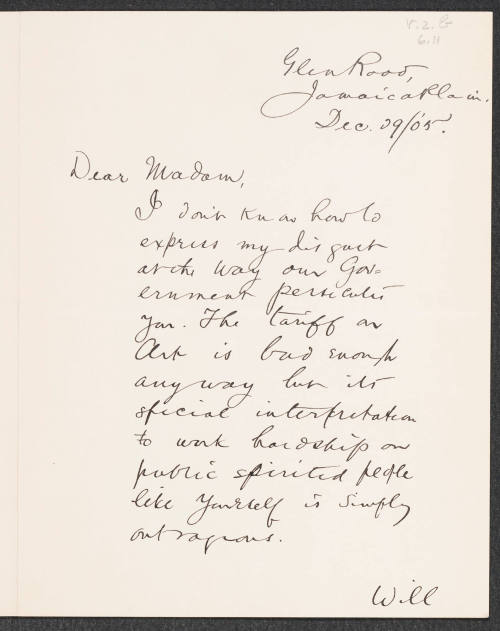 V. 2. G
6. 11
Glen Road,
Jamaica Plain.
Dec. 29/05.
Dear Madam,
I don't know how to
express my disgust
at the way our Gov-
ernment persecutes
you. The tariff on
Art is bad enough
anyway but its
special interpretation
to work hardship on
public spirited people
like yourself is simply
outrageous.
Will